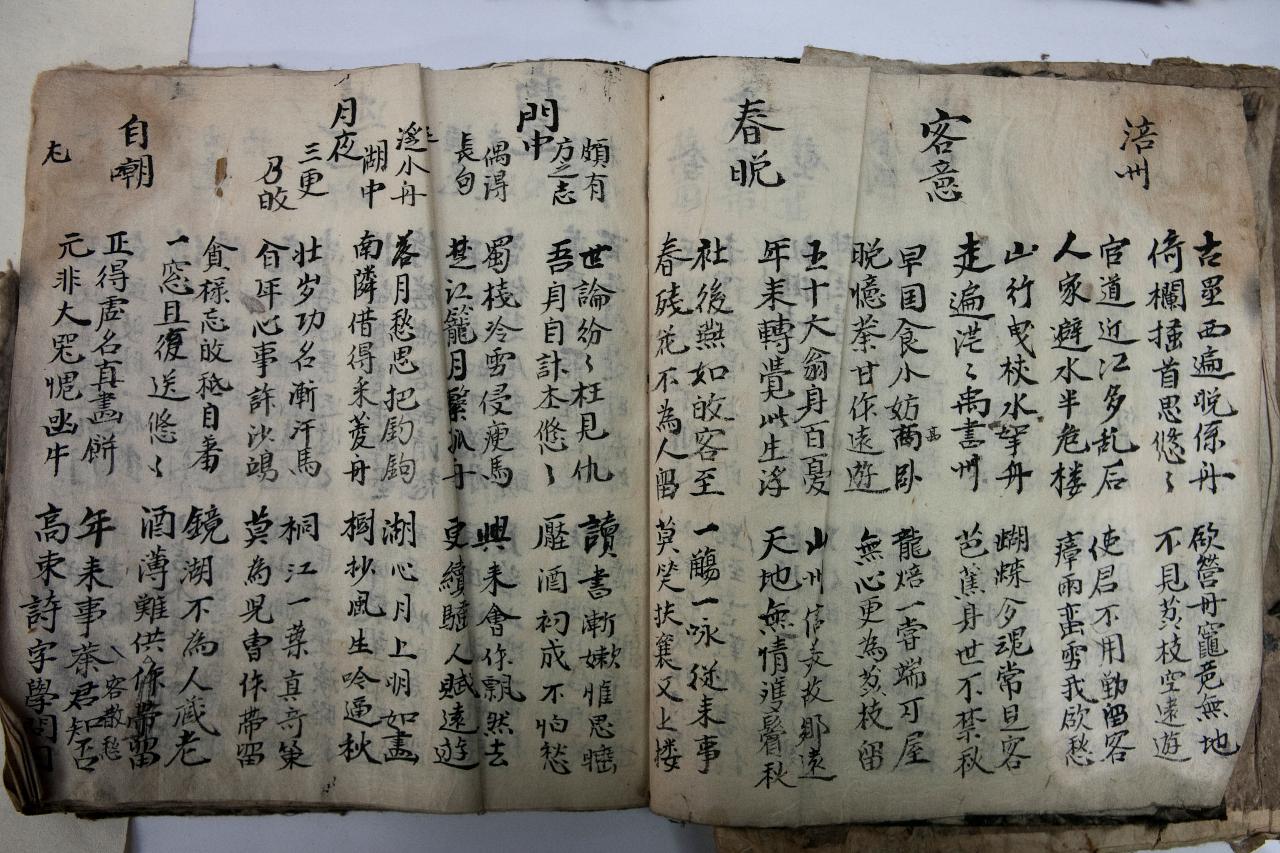 涪州
古壘西邊晚係舟
倚欄搔首思悠〻
欲營丹竈竟無地
不見荔枝空遠遊
官道近江多乱石
人家避水半危楼
使君不用勤留客
瘴雨蛮雲我欲愁
客意
山行曳杖水拏舟
走遍茫〻禹書州
蝴蝶令魂常旦客
芭蕉身世不禁秋
早因食少妨商臥
高
晚憶茶甘作遠遊
龍焙一嘗端可屋
無心更為荔枝留
春晚
五十六翁身百憂
年来轉覺此生浮
山州信美故鄉遠
天地無情雙鬢秋
社後燕如皈客至
春残花不為人留
一觴一咏従来事
莫笑扶衰又上楼
門中
頗有
方之志
偶得
長句
世論紛〻枉見仇
吾身自計本悠〻
讀書漸嫩惟思睡
壓酒初成不怕愁
蜀棧冷雪侵瘦馬
楚江籠月繫孤舟
興来會作飄然去
更續騷人賦遠遊
月夜
泛小舟
湖中
三更
乃皈
落月愁思把釣鉤
南隣借得采菱舟
湖心月上明如畫
樹抄風生吟逼秋
壮岁功名漸汗馬
百年心事許沙鴎
桐江一葉真奇策
莫為兒曹作帶留
自嘲
貪禄忘皈秪自羞
一窓且復送悠〻
鏡湖不為人蔵老
酒薄難供作帶留
客散愁
正得虛名真畫餅
元非大器愧函牛
年来事業君知否
高束詩字學問